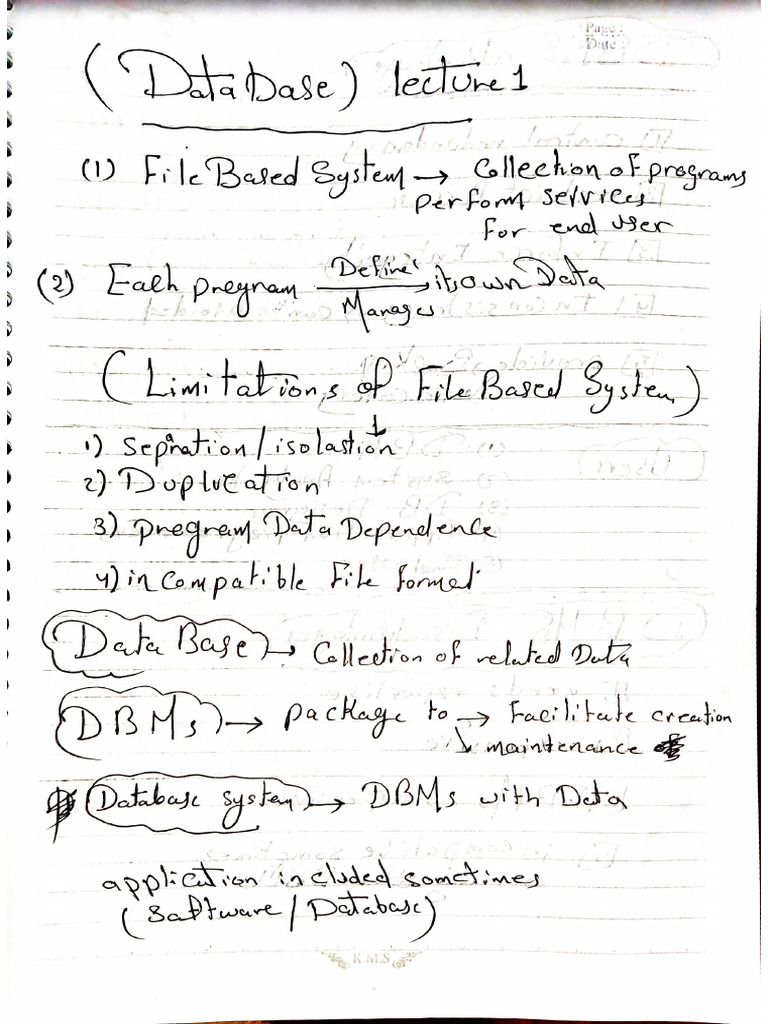 Page:
Date:
(Database) lecture 1
(1) File Based System → Collection of programs
perform services
for end user
(2) Each program Define → its own Data
Manages
(Limitations of File Based System)
↓
1) Sepration / isolastion
2) Duplication
3) program Data Dependence
4) incompatible file format
Data Base → Collection of related Data
DBMs → package to → Facilitate creation
↓ maintenance
Database system → DBMs with Data
application included sometimes
(Software / Database)
K.M.S.